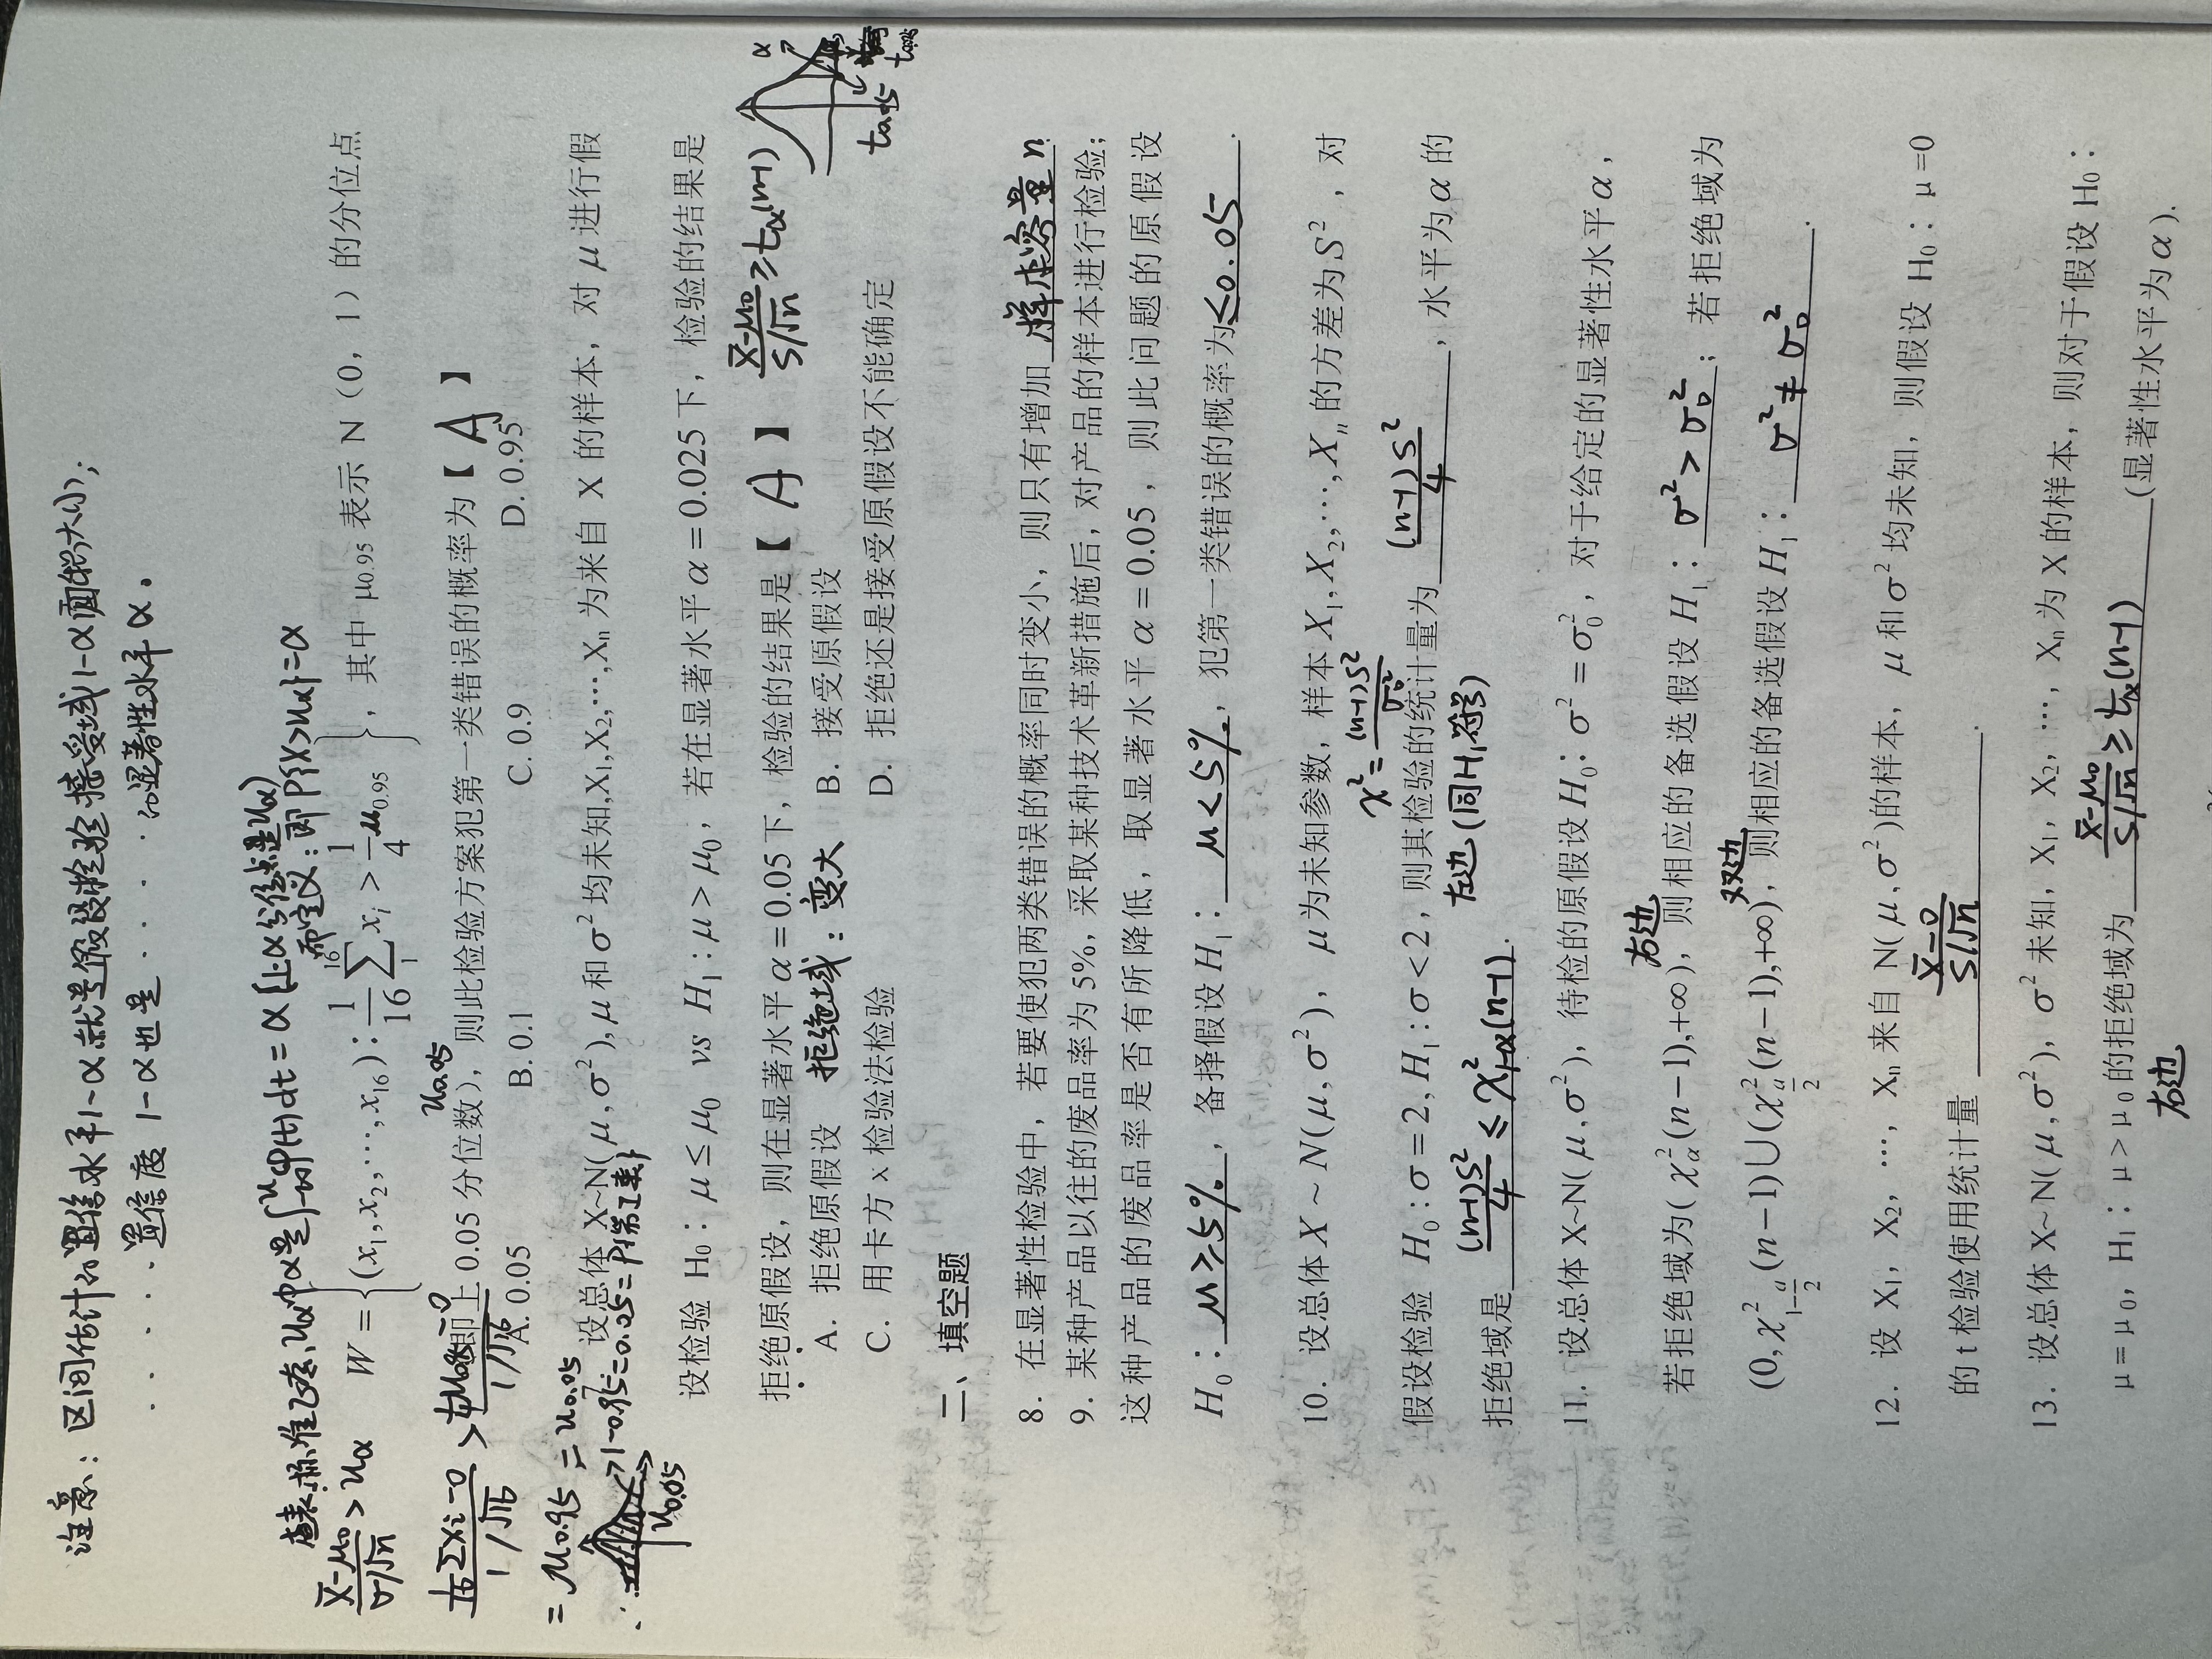 注意：区间估计的置信水平1-α就是假设检验接受域1-α面积大小；
·····置信度 1-α也是·····的显著性水平α。
查表：标准正态，u_α中α是∫_{-∞}^{u}φ(t)dt=α [上α分位点是u_α)
而定义：即P{X>u_α}=α
(X̄-μ₀)/(σ/√n) > u_α
W = {(x₁,x₂,…,x₁₆)：1/16 Σ₁¹⁶ xᵢ > 1/4 μ₀.₉₅}，其中 μ₀.₉₅ 表示 N（0，1）的分位点
u₀.₀₅
(1/16 Σxᵢ-0)/(1/√16) > (1/4 μ₀.₉₅-0)/(1/√16)
即上 0.05 分位数），则此检验方案犯第一类错误的概率为【 A 】
A. 0.05 B. 0.1 C. 0.9 D. 0.95
= μ₀.₉₅ = u₀.₀₅
7. 设总体 X~N(μ,σ²),μ和σ²均未知,X₁,X₂,…,Xₙ 为来自 X 的样本，对 μ 进行假
1-0.95=0.05=P{第I类}
u₀.₀₅
设检验 H₀：μ≤μ₀ vs H₁:μ>μ₀，若在显著水平α=0.025下，检验的结果是
拒绝原假设，则在显著水平α=0.05下，检验的结果是【 A 】
(X̄-μ₀)/(S/√n) ≥ t_α(n-1)
α
A. 拒绝原假设 拒绝域：变大 B. 接受原假设
C. 用卡方 x 检验法检验 D. 拒绝还是接受原假设不能确定
t₀.₀₅
t₀.₀₂₅
二、填空题
8. 在显著性检验中，若要使犯两类错误的概率同时变小，则只有增加 样本容量n.
9. 某种产品以往的废品率为 5%，采取某种技术革新措施后，对产品的样本进行检验；
这种产品的废品率是否有所降低，取显著水平α=0.05，则此问题的原假设
H₀：μ≥5%，备择假设H₁：μ<5%，犯第一类错误的概率为≤0.05.
10. 设总体X~N(μ,σ²)，μ为未知参数，样本X₁,X₂,…,Xₙ的方差为S²，对
χ²=(n-1)S²/σ₀²
假设检验 H₀:σ=2,H₁:σ<2，则其检验的统计量为 (n-1)S²/4，水平为α的
左边(同H₁符号)
拒绝域是 (n-1)S²/4 ≤ χ²_{1-α}(n-1).
11. 设总体 X~N(μ,σ²)，待检的原假设H₀：σ²=σ₀²，对于给定的显著性水平α，
右边
若拒绝域为(χ²_α(n-1),+∞)，则相应的备选假设H₁：σ²>σ₀²；若拒绝域为
双边
(0,χ²_{1-α/2}(n-1)∪(χ²_{α/2}(n-1),+∞)，则相应的备选假设H₁：σ²≠σ₀².
12. 设 X₁，X₂，…，Xₙ 来自 N(μ,σ²)的样本，μ和σ²均未知，则假设 H₀：μ=0
的 t 检验使用统计量 (X̄-0)/(S/√n).
13. 设总体 X~N(μ,σ²)，σ²未知，X₁，X₂，…，Xₙ 为 X 的样本，则对于假设 H₀：
μ=μ₀，H₁：μ>μ₀的拒绝域为 (X̄-μ₀)/(S/√n) ≥ t_α(n-1) (显著性水平为α).
右边